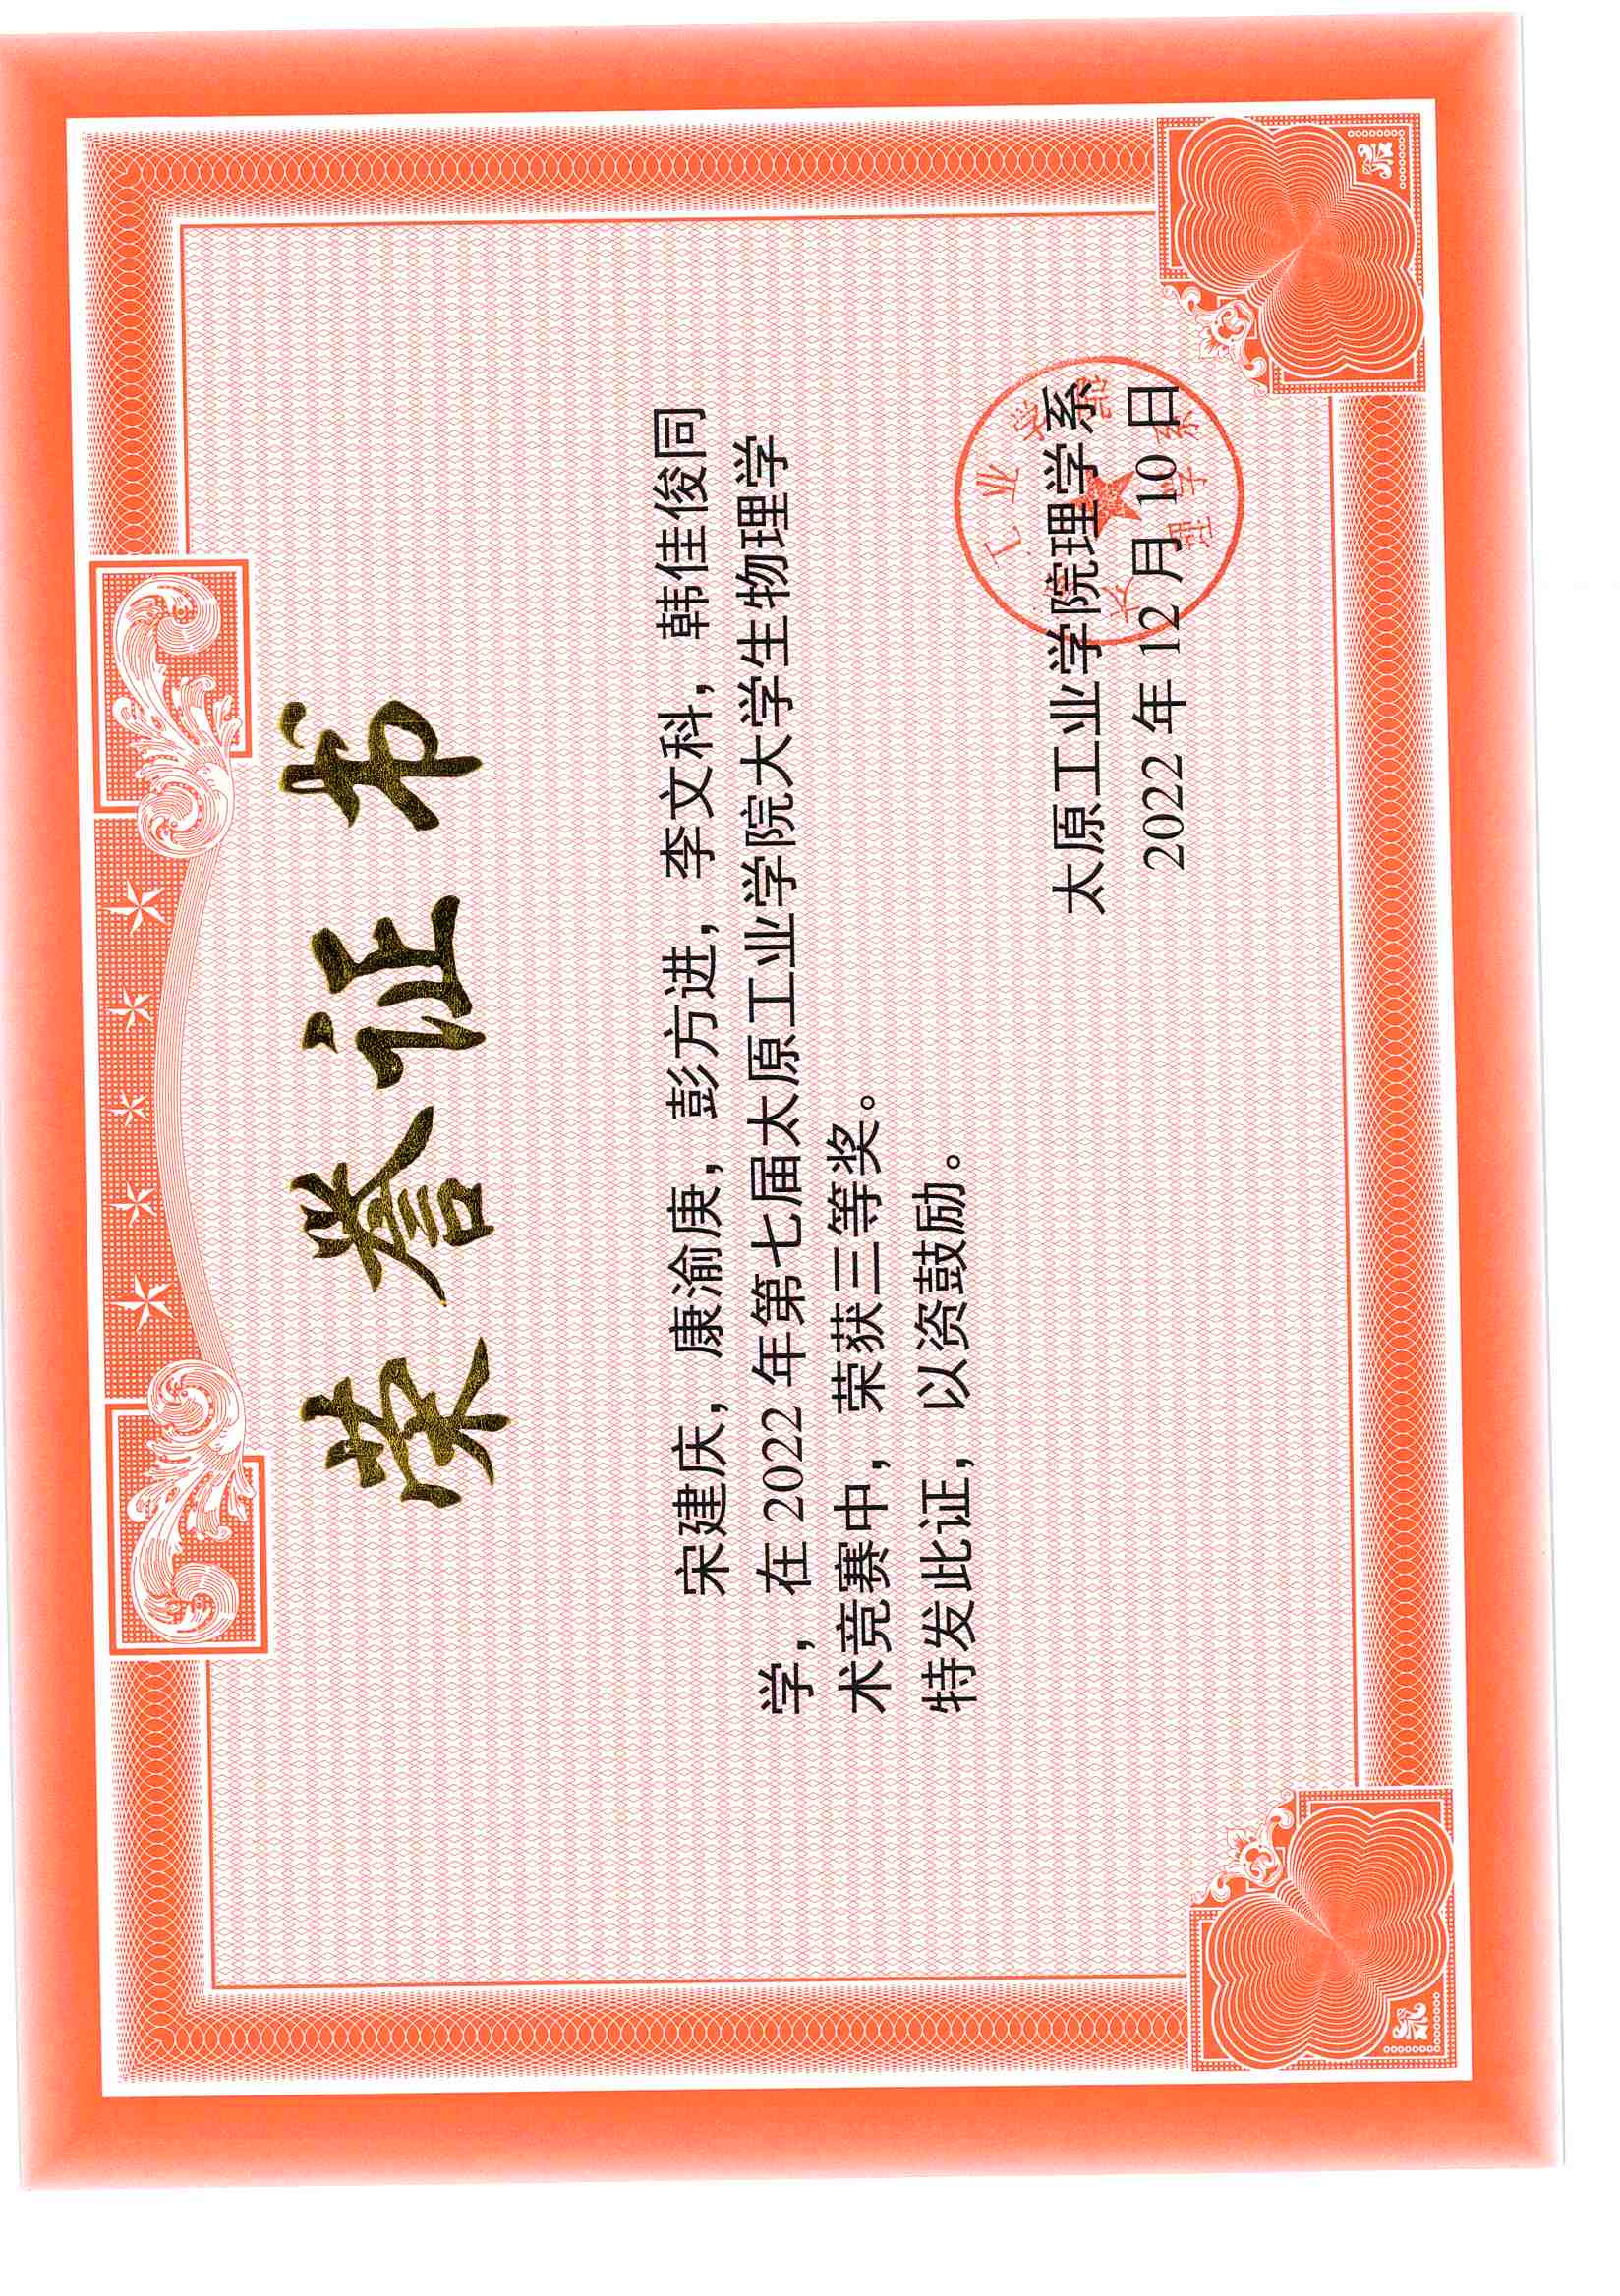 荣誉证书
宋建庆，康渝庚，彭方进，李文科，韩佳俊同
学，在 2022 年第七届太原工业学院大学生物理学
术竞赛中，荣获三等奖。
特发此证，以资鼓励。
太原工业学院理学系
2022 年 12 月 10 日
太原工业学院
理学系